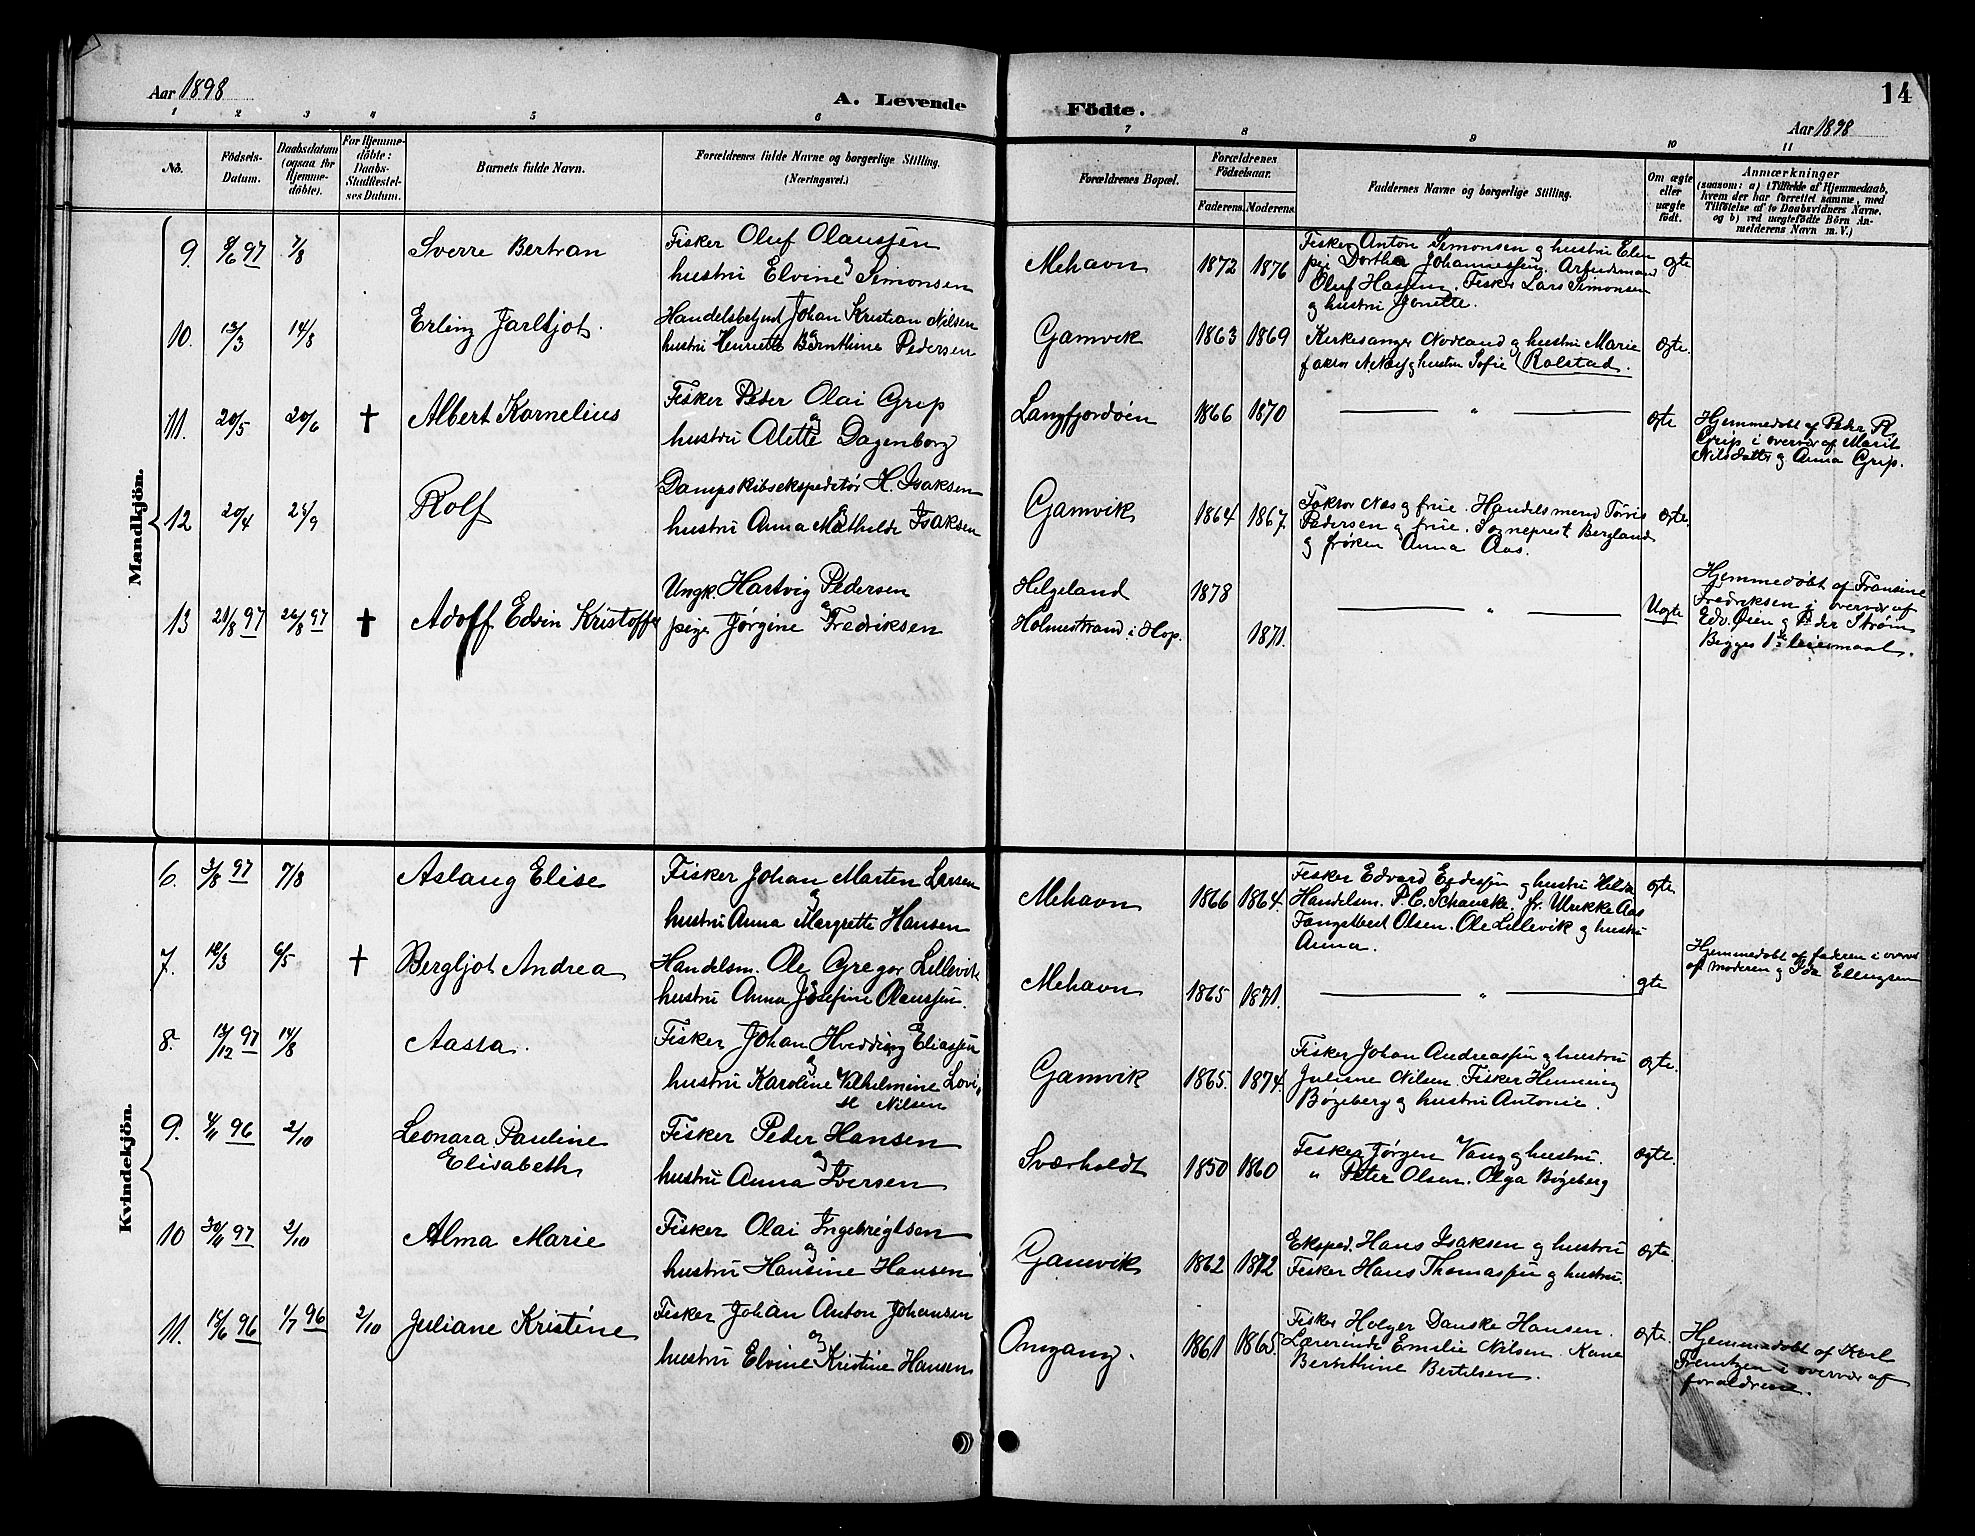 Aar 1898
A. Levende
Födte.
14
Aar 1898
1 2 3 4 5 6 7 8 9 10 11
No.
Födsels-Datum.
Daabsdatum (ogsaa for Hjemmedöbte).
For Hjemmedöbte: Daabs-Stadfestelses Datum.
Barnets fulde Navn.
Forældrenes fulde Navne og borgerlige Stilling. (Næringsvei.)
Forældrenes Bopæl.
Forældrenes Födselsaar.
Faderens. Moderens.
Faddernes Navne og borgerlige Stilling.
Om ægte eller uægte födt.
Anmærkninger
(saasom: a) i Tilfælde af Hjemmedaab,
hvem der har forrettet samme, med
Tilföielse af to Daabsvidners Navne,
og b) ved uægtefödte Börn Anmelderens Navn m. V.)
Mandkjön.
9. 9/6 97 7/8 Sverre Bertran
Fisker Oluf Olaussen
og
hustru Elvine Simonsen
Mehavn 1872 1876
Fisker Anton Simonsen og hustru Elen
pige Dorthea Johannessen. Arbeidsmand
Oluf Hansen. Fisker Lars Simonsen
og hustru Jonette.
ægte
10. 13/3 14/8 Erling Jarlsjot.
Handelsbetjent Johan Kristian Nilsen
og
hustru Henriette Bernthine Pedersen
Gamvik 1863 1869
Kirkesanger Nordland og hustru Marie
faktor N. Næs og hustru Sofie (Rolstad.
Ægte.
11. 20/5 20/6 † Albert Kornelius
Fisker Peder Olai Grip
og
hustru Alette Dagenborg
Langfjordøen 1866 1870
— " —
ægte
Hjemmedøbt af Peder R.
Grip i overvær af Marit
Nilsdatter og Anna Grip.
12 20/4 25/9 Rolf
Dampskibsekspeditør H. Isaksen
hustru Anna Mathilde Isaksen
Gamvik 1864 1867.
Faktor Næs og frue. Handelsmand Tørris
Pedersen og frue. Sogneprest Bergland
og frøken Anna Aas.
Ægte.
13 21/8 97 26/8 97 † Adolf Edvin Kristoffer
Ungk. Hartvig Pedersen
og
pige Jørgine Fredriksen
Helgeland
Holmestrand i Hop.
1878
1871.
— " —
Uægte
Hjemmedøbt af Fransine
Fredriksen i overvær af
Edv. Øien og Peder Strøm
Begges 1ste leiermaal.
Kvindekjön.
6. 3/8 97 7/8 Aslaug Elise
Fisker Johan Marten Larsen
og
hustru Anna Margrette Hansen
Mehavn 1866 1864.
Fisker Edvard Endresen og hustru Hilda
Handelsm. P. C. Schancke. fr. Ulrikke Aas
Fangelbert Olsen. Ole Lillevik og hustru
Anna.
ægte
7. 12/3 6/5 † Bergljot Andrea
Handelsm. Ole Gregor Lillevik
hustru Anna Josefine Olaussen.
Mehavn 1865 1871.
— " —
ægte
Hjemmedøbt af faderen i overvær
af moderen og Ida Ellingsen
8. 13/12 97 14/8 Aasta.
Fisker Johan Hvedding Eliassen
og
hustru Karoline Vilhelmine Lovi-
se Nilsen
Gamvik 1865. 1874.
Fisker Johan Andreassen og hustru
Juliane Nilsen. Fisker Henning
Bøgeberg og hustru Antonie.
ægte.
9. 4/11 96 2/10 Leonara Pauline
Elisabeth
Fisker Peder Hansen
og
hustru Anna Iversen
Sværholdt 1850 1860
Fisker Jørgen Vang og hustru.
" Peter Olsen. Olga Bøgeberg
ægte.
10 30/11 97 2/10 Alma Marie
Fisker Olai Ingebrigtsen
og
hustru Hansine Hansen
Gamvik 1862 1872
Eksped. Hans Isaksen og hustru
Fisker Hans Thomassen og hustru.
ægte
11. 15/6 96 1/7 96 2/10 Juliane Kristine
Fisker Johan Anton Johansen
og
hustru Elvine Kristine Hansen
Omgang. 1861 1865.
Fisker Holger Danske Hansen.
Lærerinde Emilie Nilsen. Kone
Berethine Bertelsen.
ægte.
Hjemmedøbt af Karl
Frentzen i overvær af
forældrene.